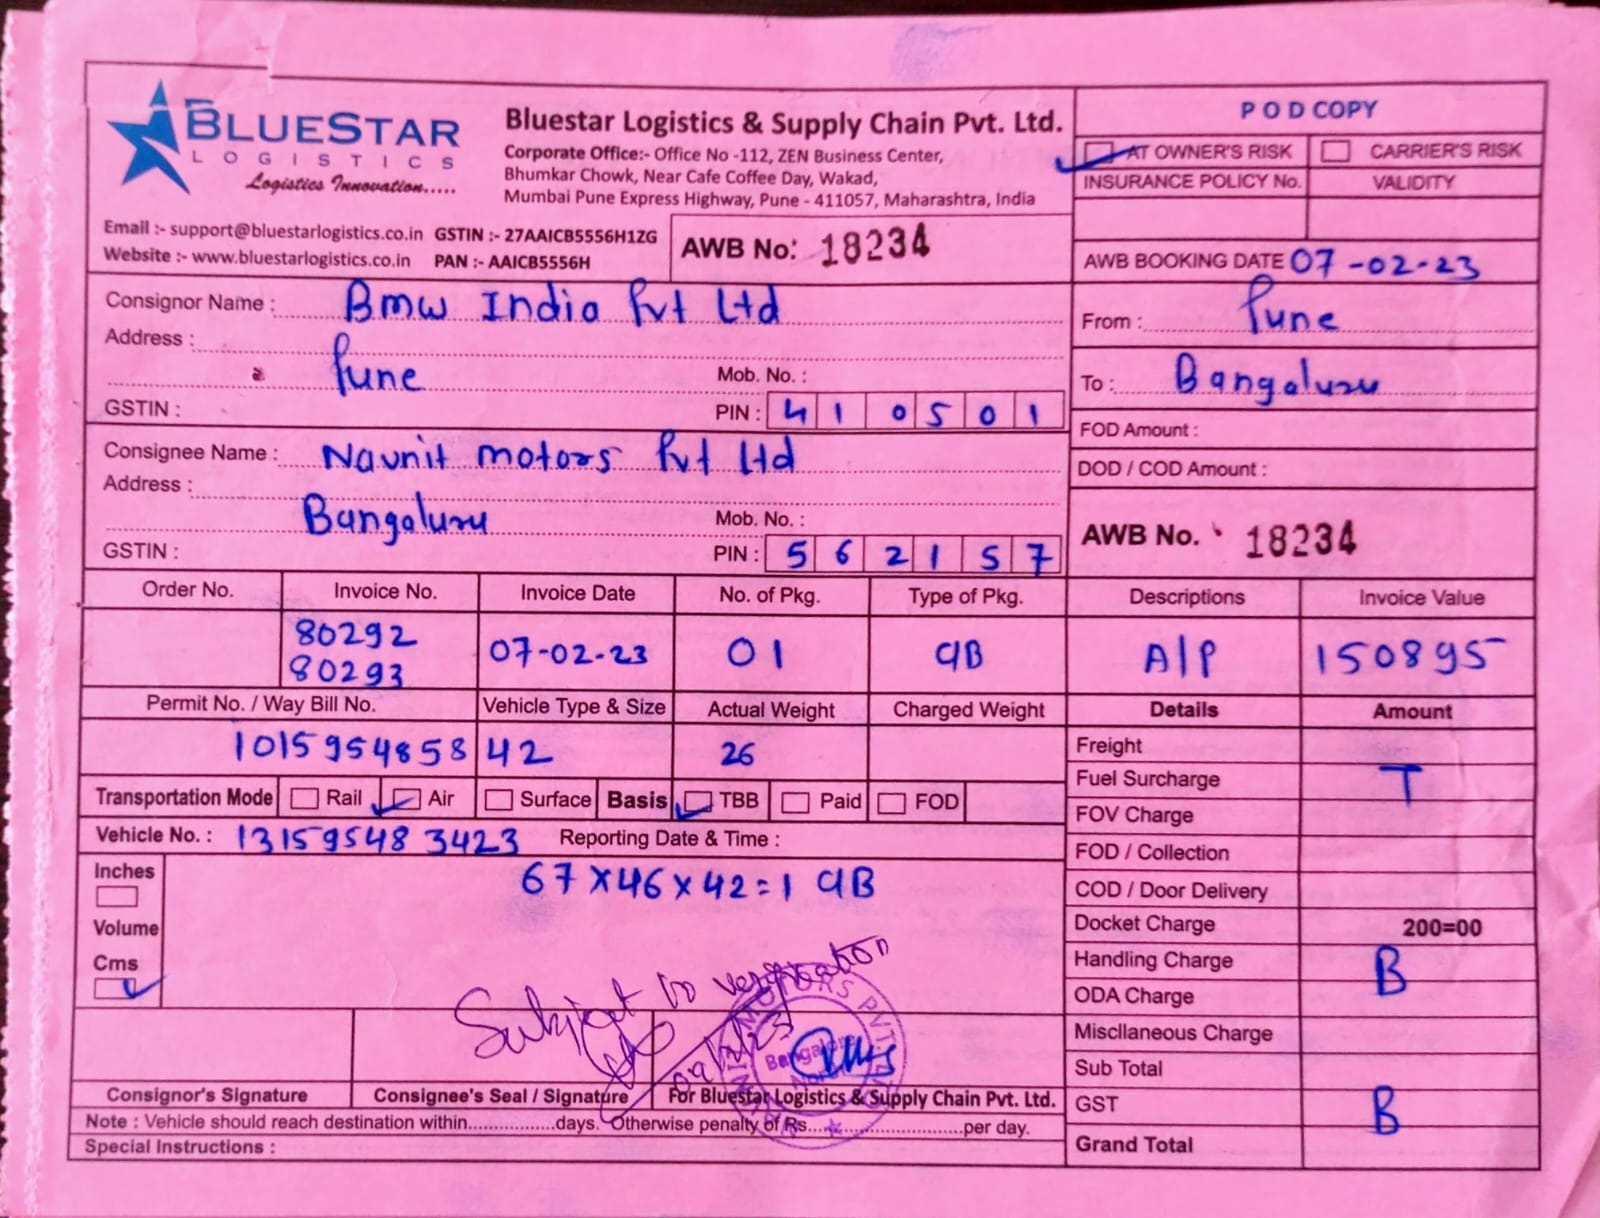 BLUESTAR
LOGISTICS
Logistics Innovation.....
Bluestar Logistics & Supply Chain Pvt. Ltd.
Corporate Office:- Office No -112, ZEN Business Center,
Bhumkar Chowk, Near Cafe Coffee Day, Wakad,
Mumbai Pune Express Highway, Pune - 411057, Maharashtra, India
Email :- support@bluestarlogistics.co.in GSTIN :- 27AAICB5556H1ZG
Website :- www.bluestarlogistics.co.in PAN :- AAICB5556H
AWB No: 18234
POD COPY
AT OWNER'S RISK CARRIER'S RISK
INSURANCE POLICY No. VALIDITY
AWB BOOKING DATE 07-02-23
Consignor Name : Bmw India Pvt Ltd
Address :
Pune Mob. No. :
GSTIN : PIN : 410501
From : Pune
To : Bangaluru
FOD Amount :
DOD / COD Amount :
Consignee Name : Navnit motors Pvt Ltd
Address :
Bangaluru Mob. No. :
GSTIN : PIN : 562157
AWB No. 18234
Order No. Invoice No. Invoice Date No. of Pkg. Type of Pkg. Descriptions Invoice Value
80292
80293 07-02-23 01 CB A/P 150895
Permit No. / Way Bill No. Vehicle Type & Size Actual Weight Charged Weight Details Amount
1015954858 42 26
Transportation Mode Rail Air Surface Basis TBB Paid FOD
Vehicle No. : 131595483423 Reporting Date & Time :
Inches
Volume
Cms
67x46x42=1 CB
Freight
Fuel Surcharge T
FOV Charge
FOD / Collection
COD / Door Delivery
Docket Charge 200=00
Handling Charge B
ODA Charge
Miscllaneous Charge
Sub Total
GST B
Grand Total
Subject to verification
MOTORS PVT.
Bangalore
Consignor's Signature Consignee's Seal / Signature For Bluestar Logistics & Supply Chain Pvt. Ltd.
Note : Vehicle should reach destination within................days. Otherwise penalty of Rs.............................per day.
Special Instructions :